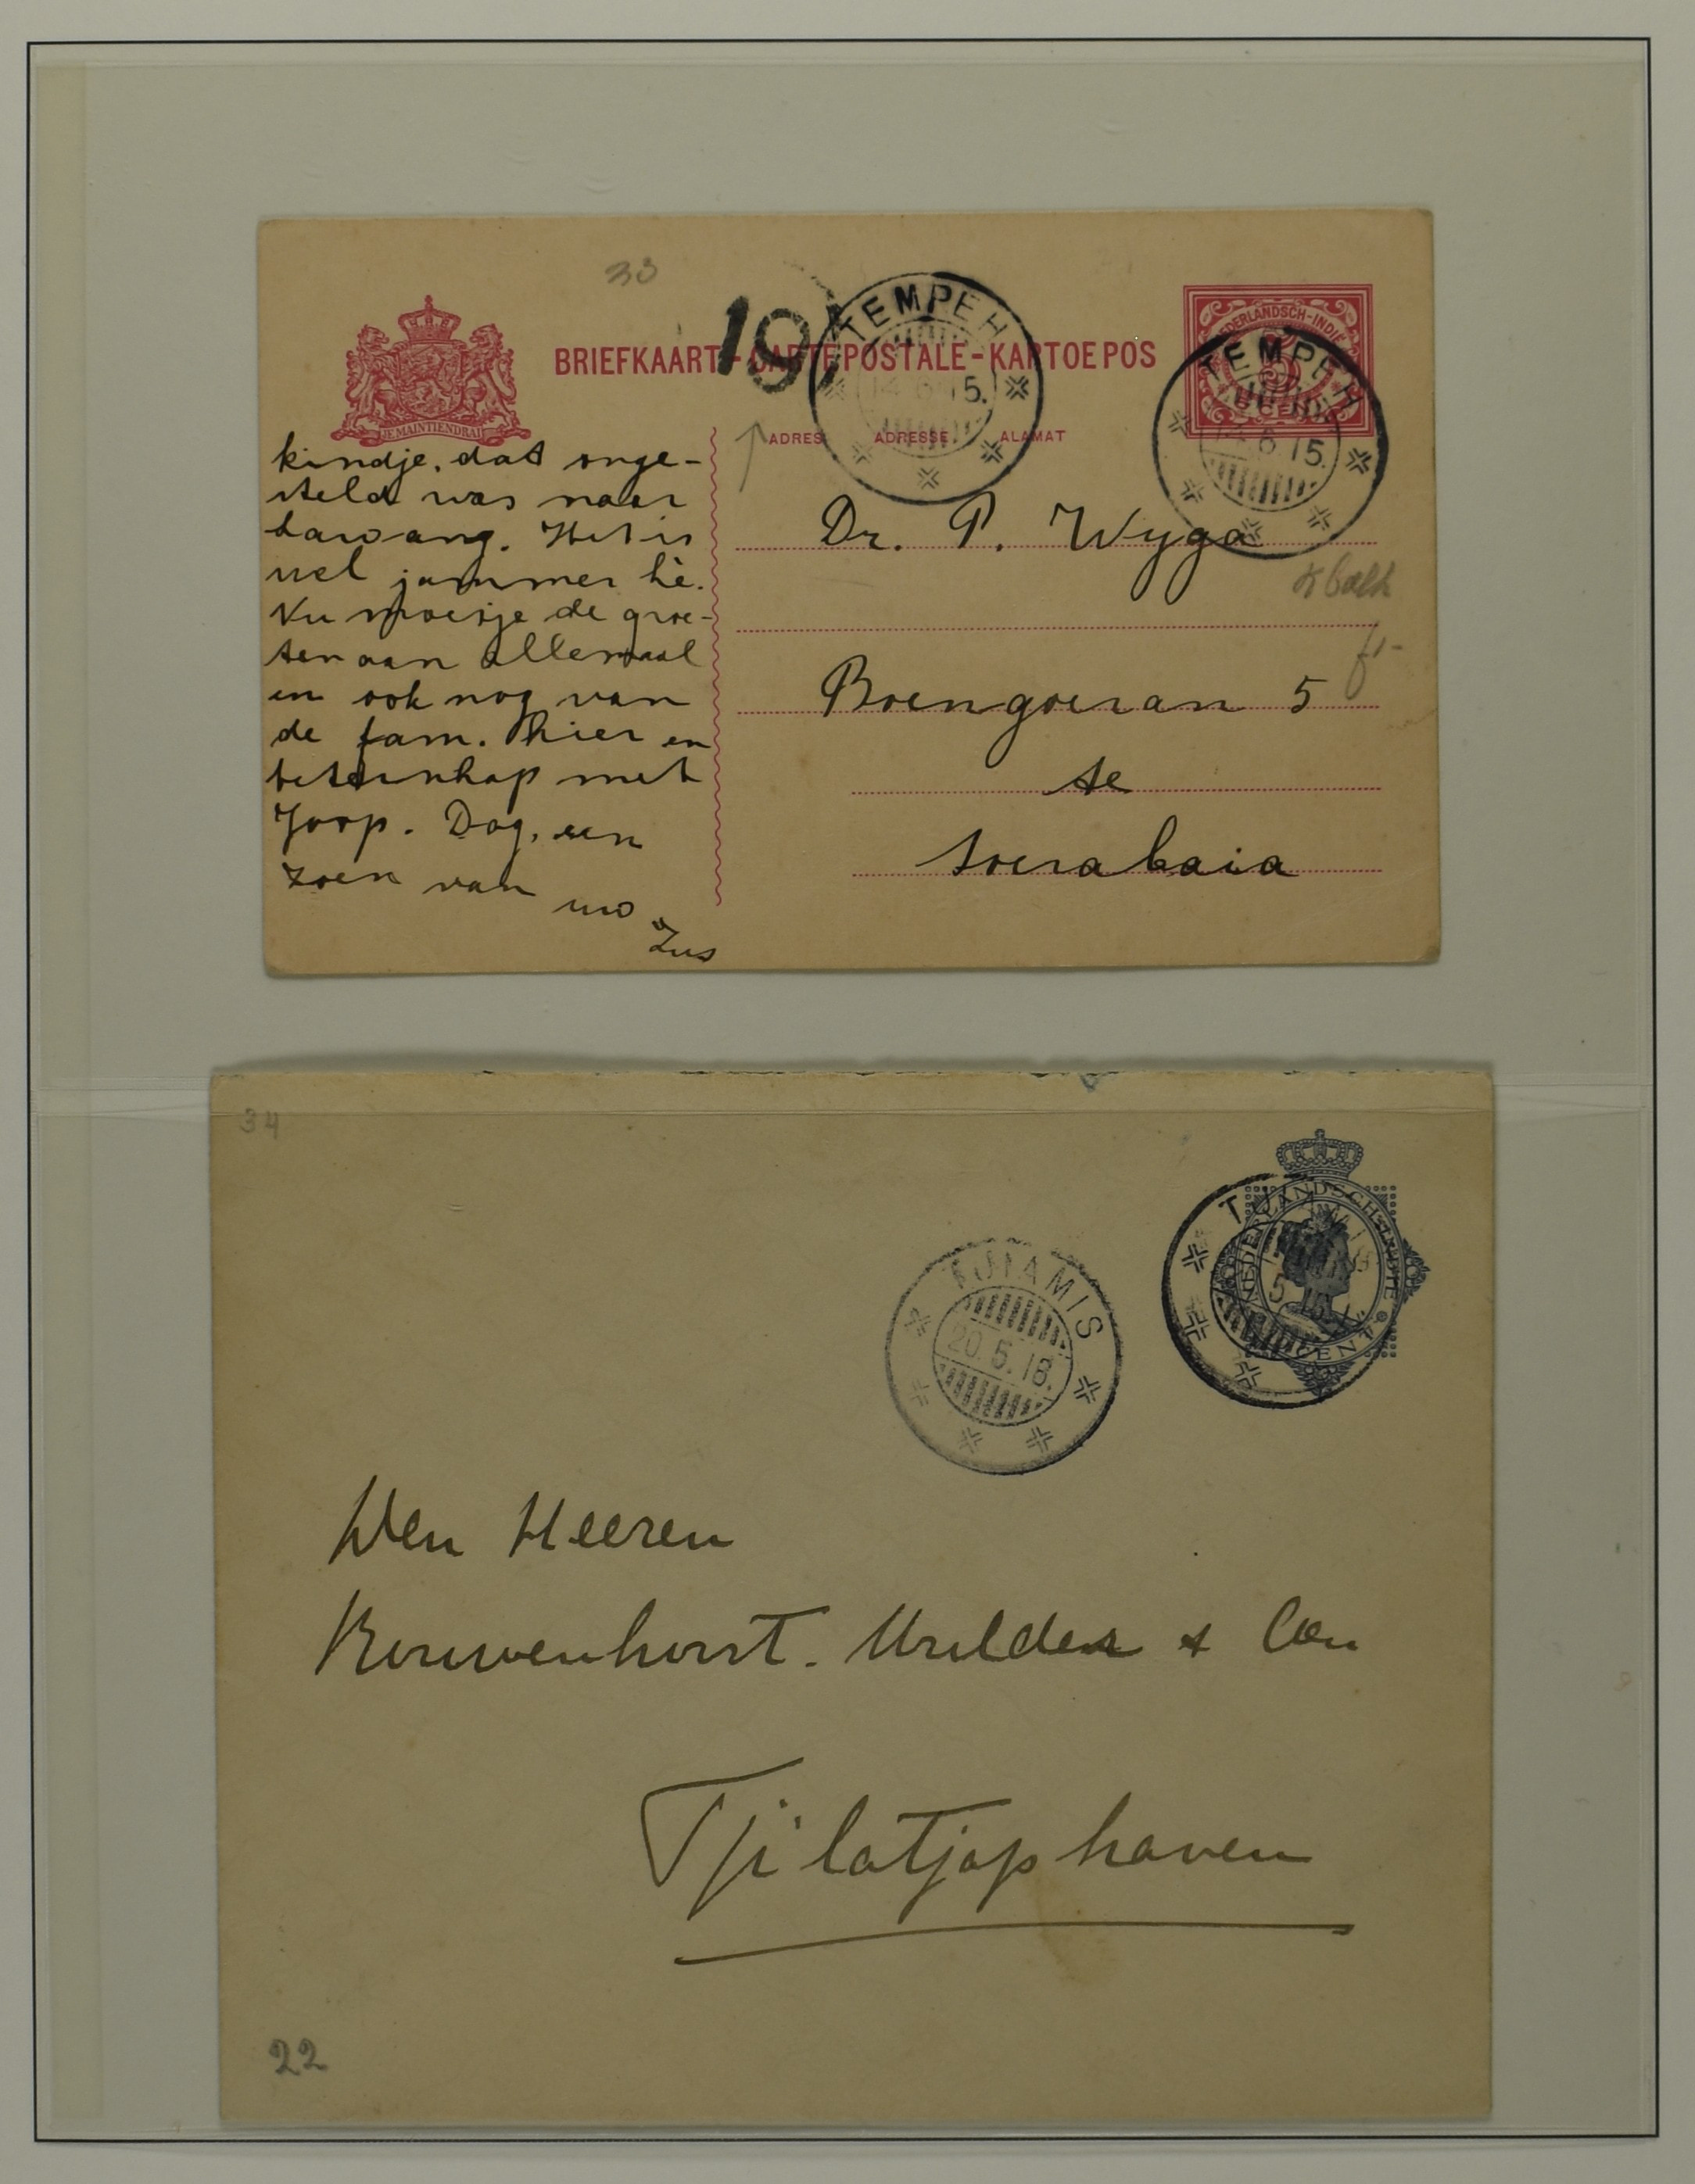 33
197
TEMPEH
14 6 15.
BRIEFKAART-CARTE POSTALE-KARTOE POS
NEDERLANDSCH-INDIË
5 CENT
TEMPEH
6 15.
JE MAINTIENDRAI
ADRES ADRESSE ALAMAT
kindje, dat onge-
steld was naar
Lawang. Het is
wel jammer hè.
Nu moesje de groe-
ten aan allemaal
en ook nog van
de fam. hier en
beterschap met
Joop. Dag, een
zoen van uw
Zus
Dr. P. Wyga
Boengoeran 5
te
Soerabaia
34
NEDERLANDSCH-INDIE
CENT
TJIAMIS
20.5.18.
Den Heeren
Kouwenhorst. Mulder & Co
Tjilatjap haven
22